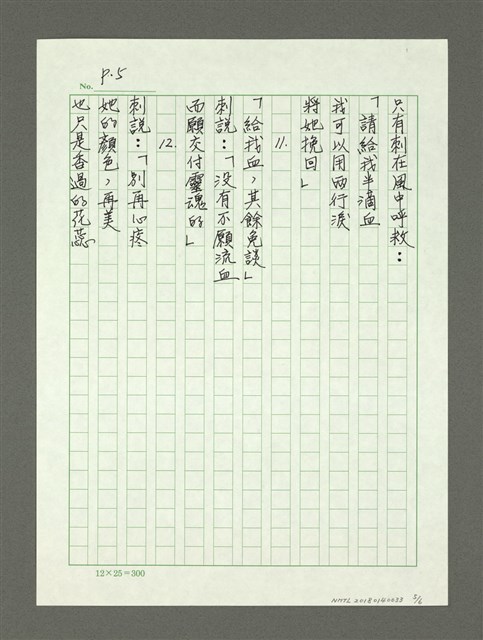 No. P.5
只有刺在風中呼救：
「請給我半滴血
我可以用兩行淚
將她挽回」
11.
「給我血，其餘免談」
刺說：「没有不願流血
而願交付靈魂的」
12.
刺說：「別再心疼
她的顏色，再美
也只是香過的花蕊
12×25=300
NMTL 20180140033 5/6